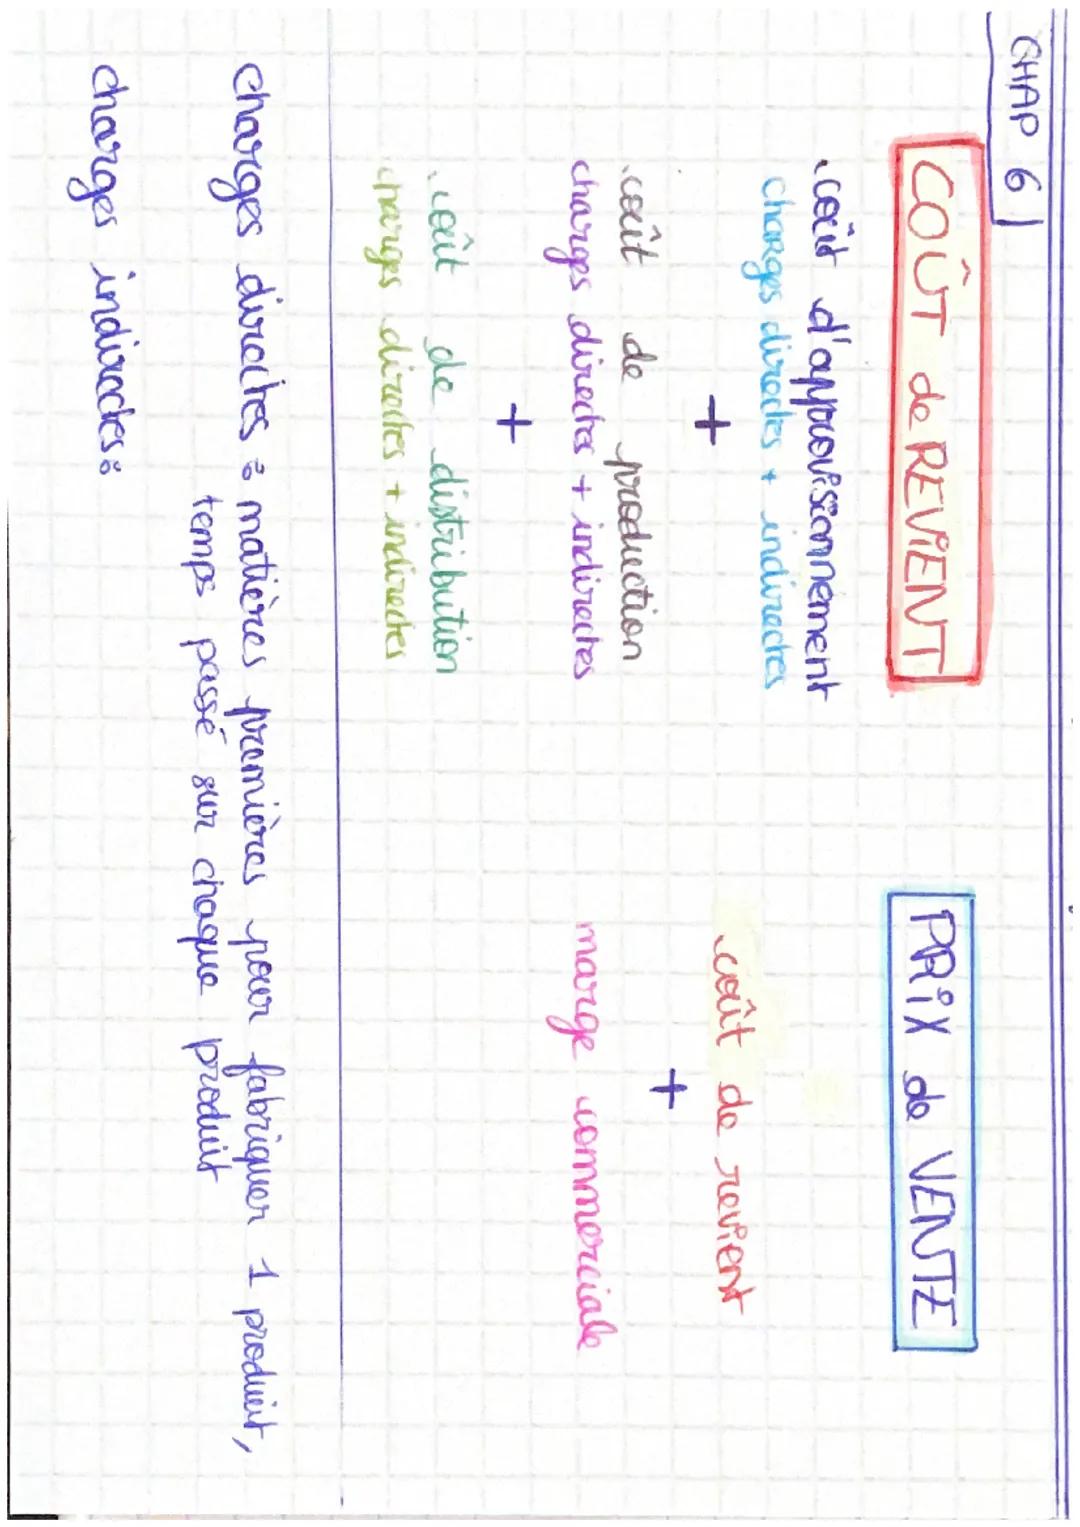 CHAP 6
COÛT de REVIENT
. coût d'approvisionnement
charges directes + indirectes
+
. coût de production
charges directes + indirectes
+
. coût de distribution
charges directes + indirectes
PRIX de VENTE
coût de revient
+
marge commerciale
charges directes : matières premières pour fabriquer 1 produit,
temps passé sur chaque produit
charges indirectes :